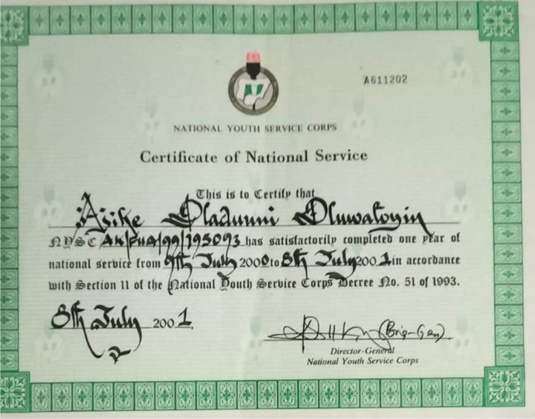 A611202
NATIONAL YOUTH SERVICE CORPS
Certificate of National Service
This is to Certify that
Asike Oladunni Oluwatoyin
NYSC AK/PUA/99/195093 has satisfactorily completed one year of
national service from 9th July 2000 to 8th July 2001 in accordance
with Section 11 of the National Youth Service Corps Decree No. 51 of 1993.
8th July 2001
(Brig-Gen)
Director-General
National Youth Service Corps